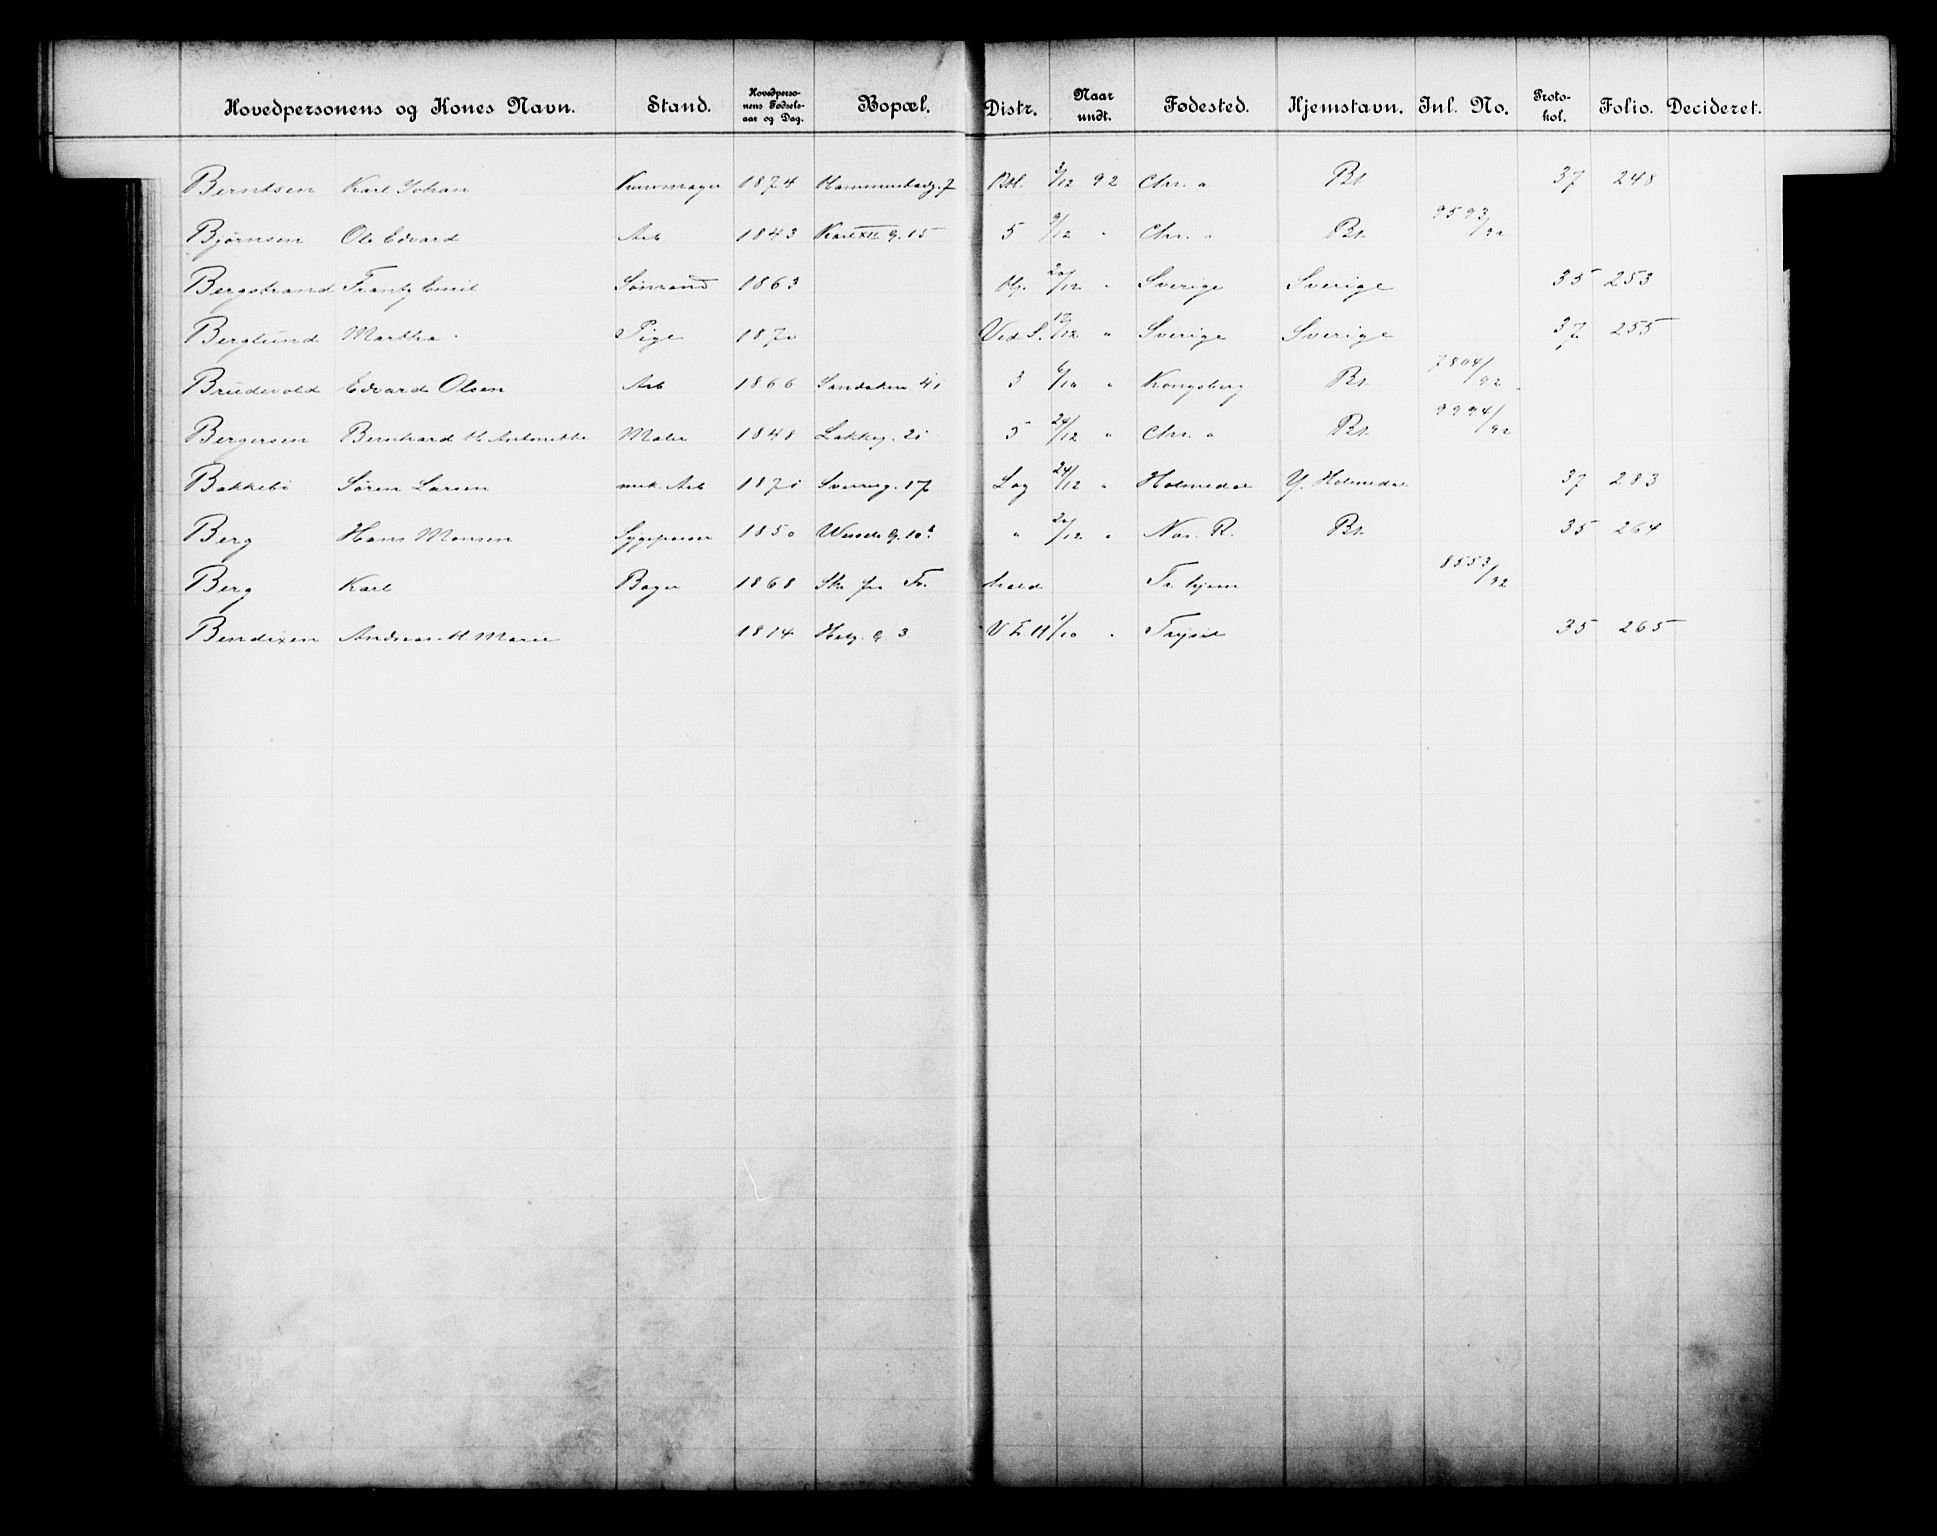 Hovedpersonens og Kones Navn. Stand. Hovedpersonens Fødselsaar og Dag. Bopæl. Distr. Naar undt. Fødested. Hjemstavn. Inl. No. Protokol. Folio. Decideret.
Berntsen Karl Johan Kurvmager 1874 Hammerstadg. 7 3/12 92 Chr. a Bt. 37 248
Bjørnsen Ole Edvard Arb 1843 Karl XII g. 15 5 9/12 " Chr. a Bt. 9593/92
Bergstrand Frantz Emil 1863 20/12 " Sverige Sverige 35 253
Berglund Martha Pige 1870 Ved S. 12/12 " Sverige Sverige 37 255
Brudevold Edvard Olsen Arb 1866 Sandaker 41 3 6/10 " Kongsberg Bt. 7804/92
Bergersen Bernhard H. Antonette Maler 1848 Lakkeg. 21 5 24/12 " Chr. a Bt. 9994/92
Bakkebö Sören Larsen mek. Arb 1871 Sverreg. 17 Lag 24/12 " Holmedal Y. Holmedal 37 283
Berg Hans Monsen Sygepasser 1850 Wessels G. 10 " 20/12 " Nor. R. Bt. 35 264
Berg Karl Bager 1868 Tr. hjem 8553/92
Bendixen Andreas H. Marie 1814 Helg. G 3 1/10 " Trysil 35 265